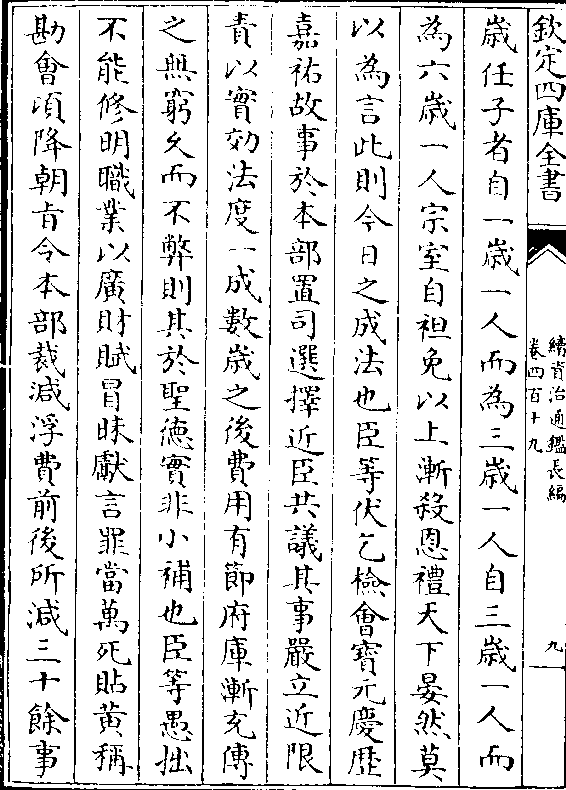 欽定四庫全書
續資治通鑑長編
卷四百十九
九
歳任子者自一歳一人而為三歳一人自三歳一人而
為六歳一人宗室自袒免以上漸殺恩禮天下晏然莫
以為言此則今日之成法也臣等伏乞檢會寳元慶歴
嘉祐故事於本部置司選擇近臣共議其事嚴立近限
責以實効法度一成數歳之後費用有節府庫漸充傳
之無窮久而不弊則其於聖德實非小補也臣等愚拙
不能修明職業以廣財賦冒昧獻言罪當萬死貼黄稱
勘會頃降朝㫖令本部裁減浮費前後所減三十餘事